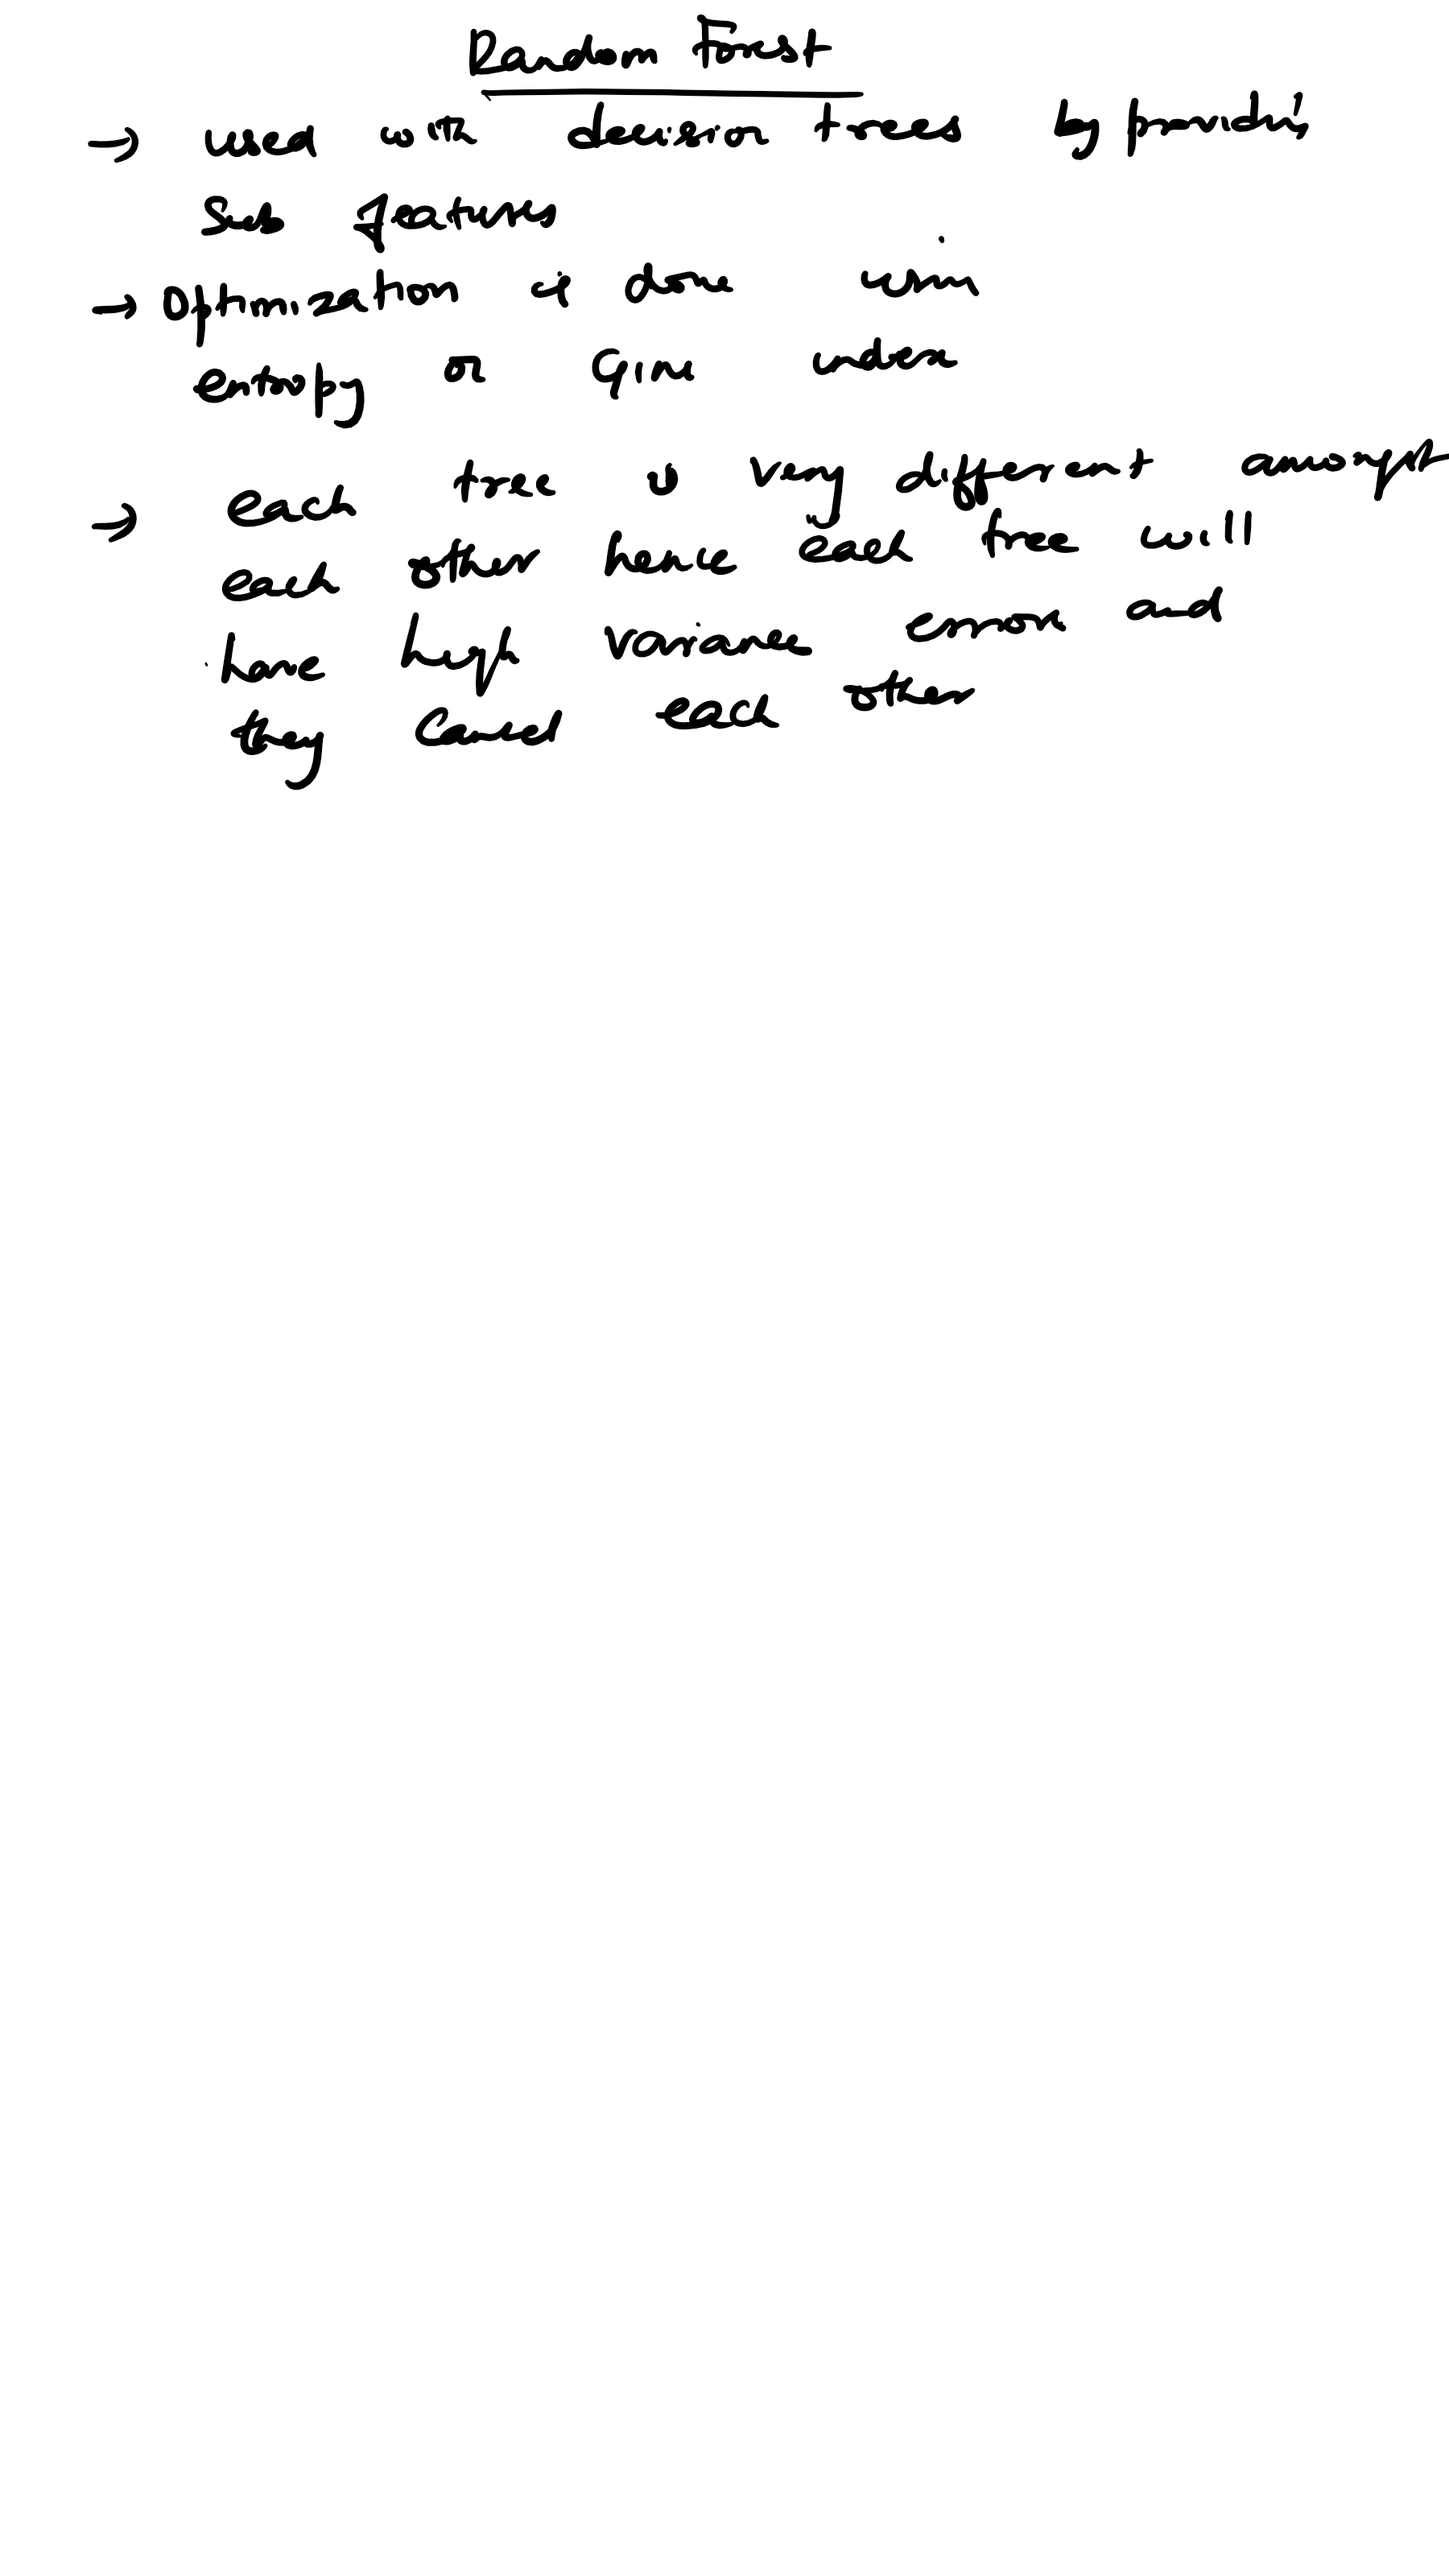 Random Forest
→ used with decision trees by providing
Sub features
→ Optimization is done using
entropy or Gini index
→ each tree is very different amongst
each other hence each tree will
have high variance error and
they cancel each other